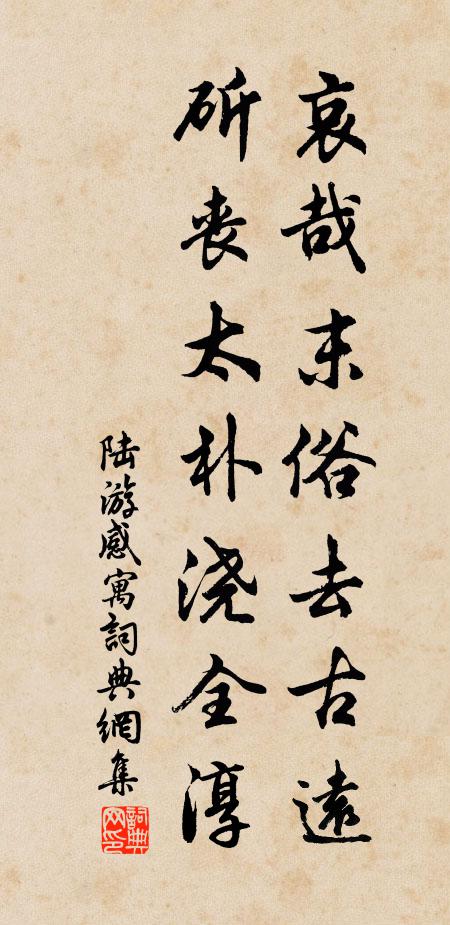 哀哉末俗去古遠
斫丧太朴浇全淳
陆游感寓詞典網集
詞典网印